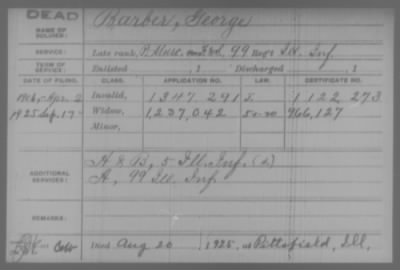 DEAD
NAME OF SOLDIER: Barber, George
SERVICE: Late rank, P. Music. and F&S, 99 Reg't Ill. Inf.
TERM OF SERVICE: Enlisted , 1 Discharged , 1
DATE OF FILING. CLASS. APPLICATION NO. LAW. CERTIFICATE NO.
Apr. 2 Invalid, 1347291 1122273
1925 Sep. 17 Widow, 1,237,042 966,127
Minor,
ADDITIONAL SERVICES: H & B, 5 Ill. Inf.
A, 99 Ill. Inf.
REMARKS:
Died Aug 20 1925, at Pittsfield, Ill.